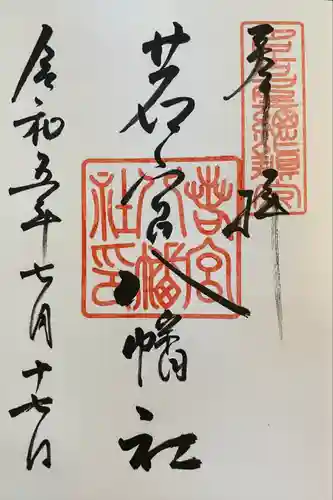 奉拝
若宮八幡社
若宮
八幡
社印
令和五年七月十七日